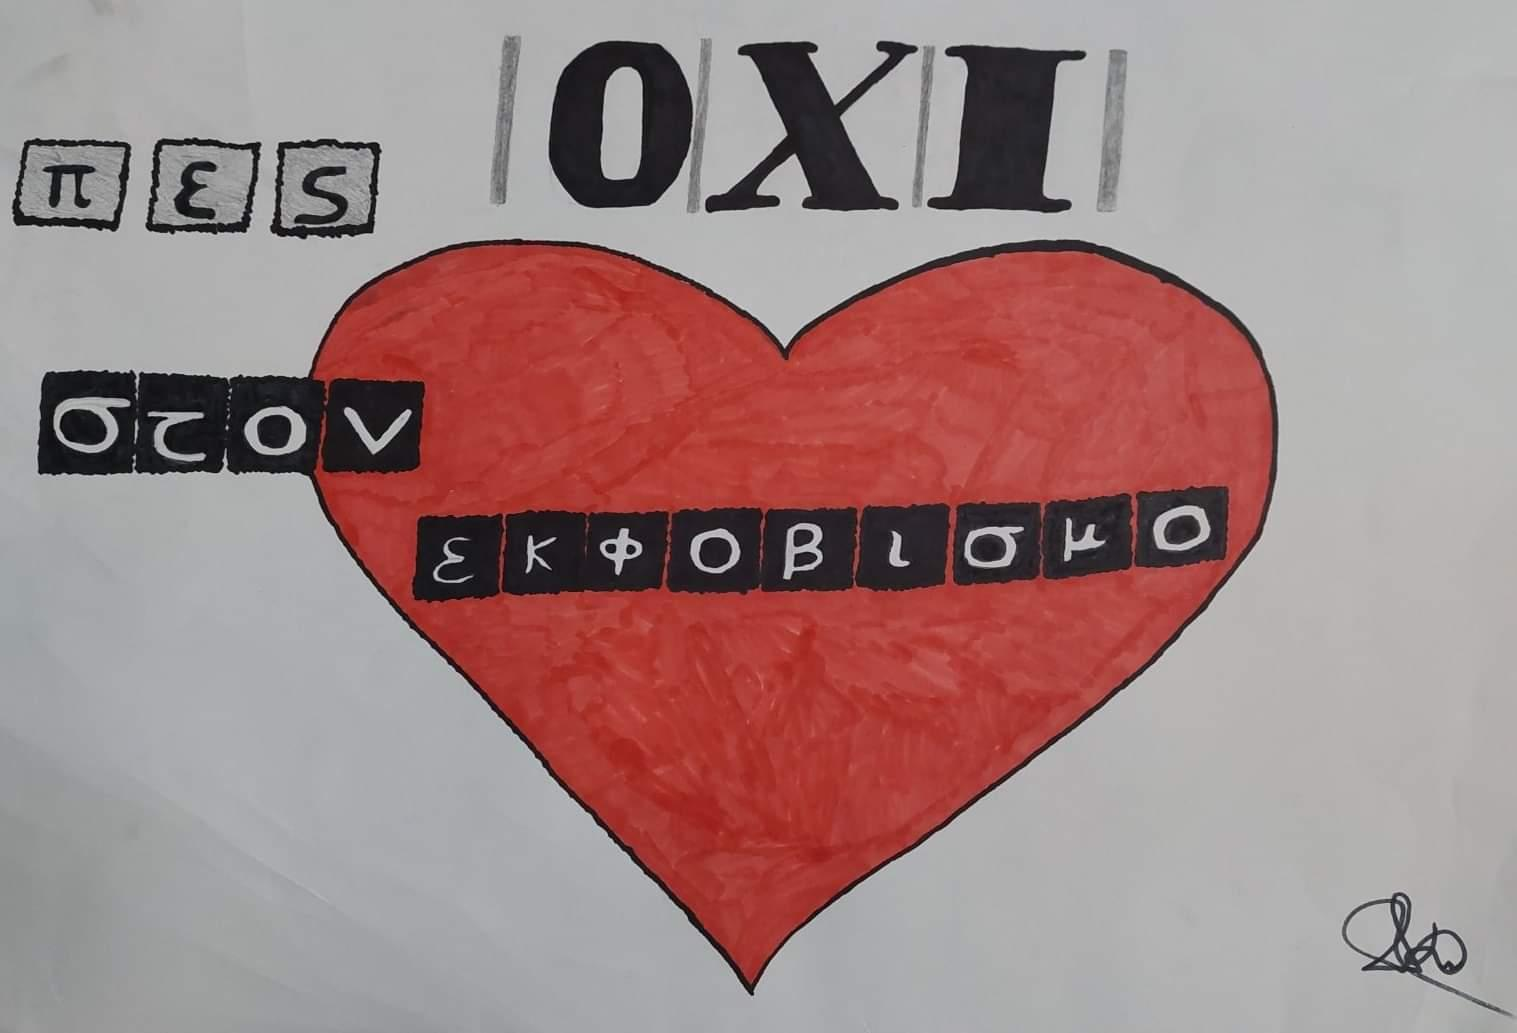 πες ΟΧΙ
στον
εκφοβισμο